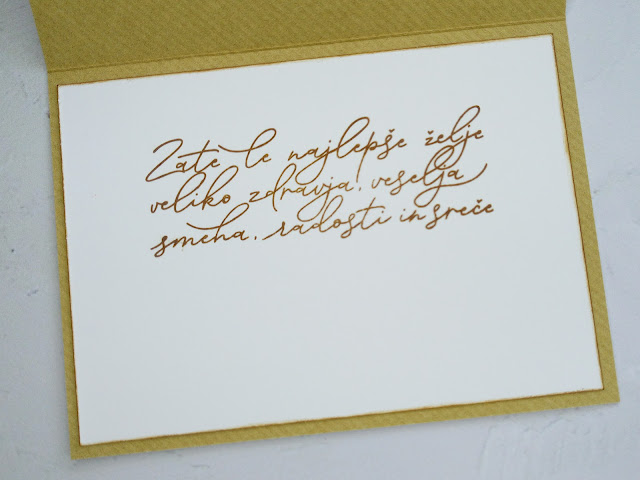 Zate le najlepše želje
veliko zdravja, veselja
smeha, radosti in sreče